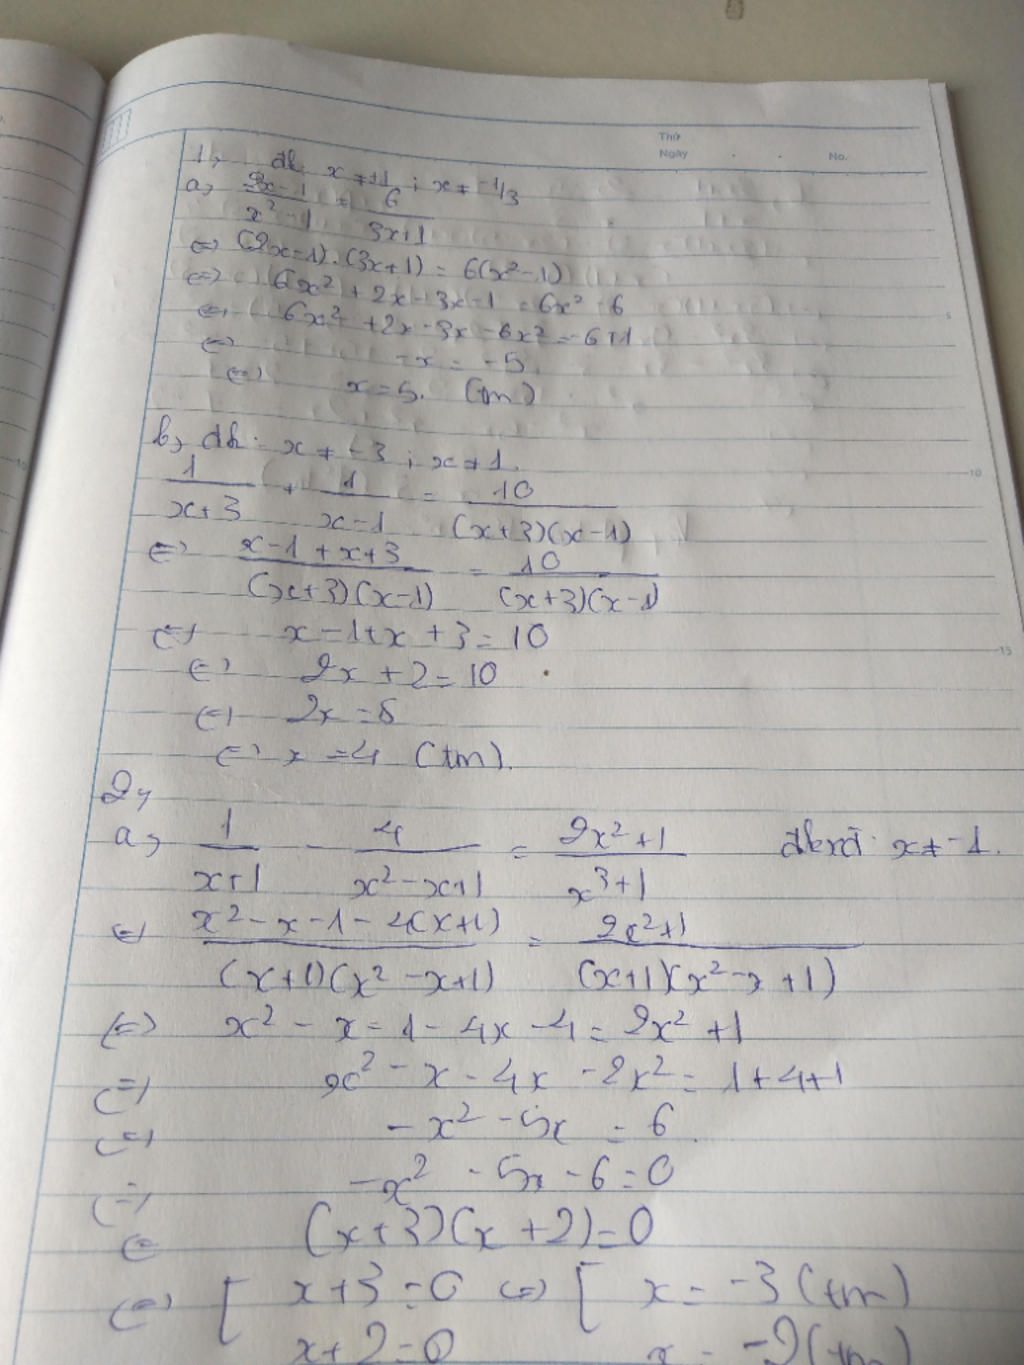 Thứ
Ngày . . No.
1, đk x ≠ ±1 ; x ≠ -1/3
a, 2x-1 / x²-1 = 6 / 3x+1
<=> (2x-1).(3x+1) = 6(x²-1)
<=> 6x² + 2x - 3x - 1 = 6x² - 6
<=> 6x² + 2x - 3x - 6x² = -6+1
<=> -x = -5
<=> x = 5. (tm)
b, đk: x ≠ -3 ; x ≠ 1.
1 / x+3 + 1 / x-1 = 10 / (x+3)(x-1)
<=> x-1+x+3 / (x+3)(x-1) = 10 / (x+3)(x-1)
<=> x-1+x+3=10
<=> 2x+2=10
<=> 2x=8
<=> x=4 (tm).
2,
a, 1 / x+1 - 4 / x²-x+1 = 2x²+1 / x³+1 đkxđ: x ≠ -1.
<=> x²-x-1-4(x+1) / (x+1)(x²-x+1) = 2x²+1 / (x+1)(x²-x+1)
<=> x²-x-1-4x-4=2x²+1
<=> x²-x-4x-2x²=1+4+1
<=> -x²-5x=6
<=> -x²-5x-6=0
<=> (x+3)(x+2)=0
<=> [ x+3=0 <=> [ x=-3 (tm)
x+2=0 x=-2 (tm)